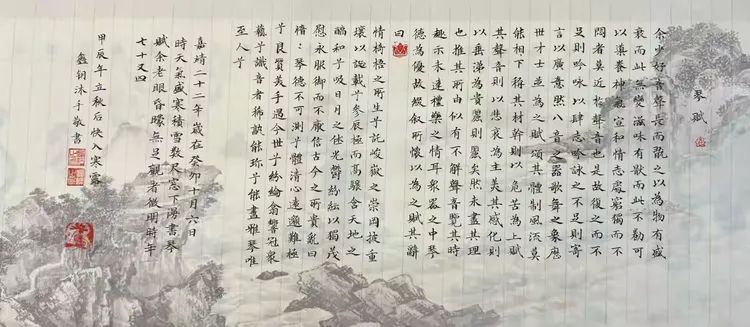 琴賦
余少好音聲長而翫之以為物有盛
衰而此無變滋味有猒而此不勌可
以導養神氣宣和情志處窮獨而不
悶者莫近於聲音也是故復之而不
足則吟咏以肆志吟詠之不足則寄
言以廣意然八音之器歌舞之象歷
世才士並為之賦頌其體制風流莫
能相下稱其材幹則以危苦為上賦
其聲音則以悲哀為主美其感化則
以垂涕為貴麗則麗矣然未盡其理
也推其所由似有不解聲音覽其時
趣亦未達禮樂之情耳衆器之中琴
德為優故綴叙所懷以為之賦其辭
曰
情椅梧之所生兮託峻嶽之崇岡披重
壤以誕載兮參辰極而高驤含天地之
醕和兮吸日月之休光鬱紛紜以獨茂
慰永服御而不厭信古今之所貴亂曰
愔：琴德不可測兮體清心遠邈難極
兮良質美手遇今世兮紛綸翕響冠衆
藝兮識音者稀孰能珍兮能盡雅琴唯
至人兮
嘉靖二十二年歲在癸卯十月六日
時天氣盛寒積雪數尺窓下漫書琴
賦余老眼昏曚無足觀者徵明時年
七十又四
甲辰年立秋后快入寒露
钥沐手敬書